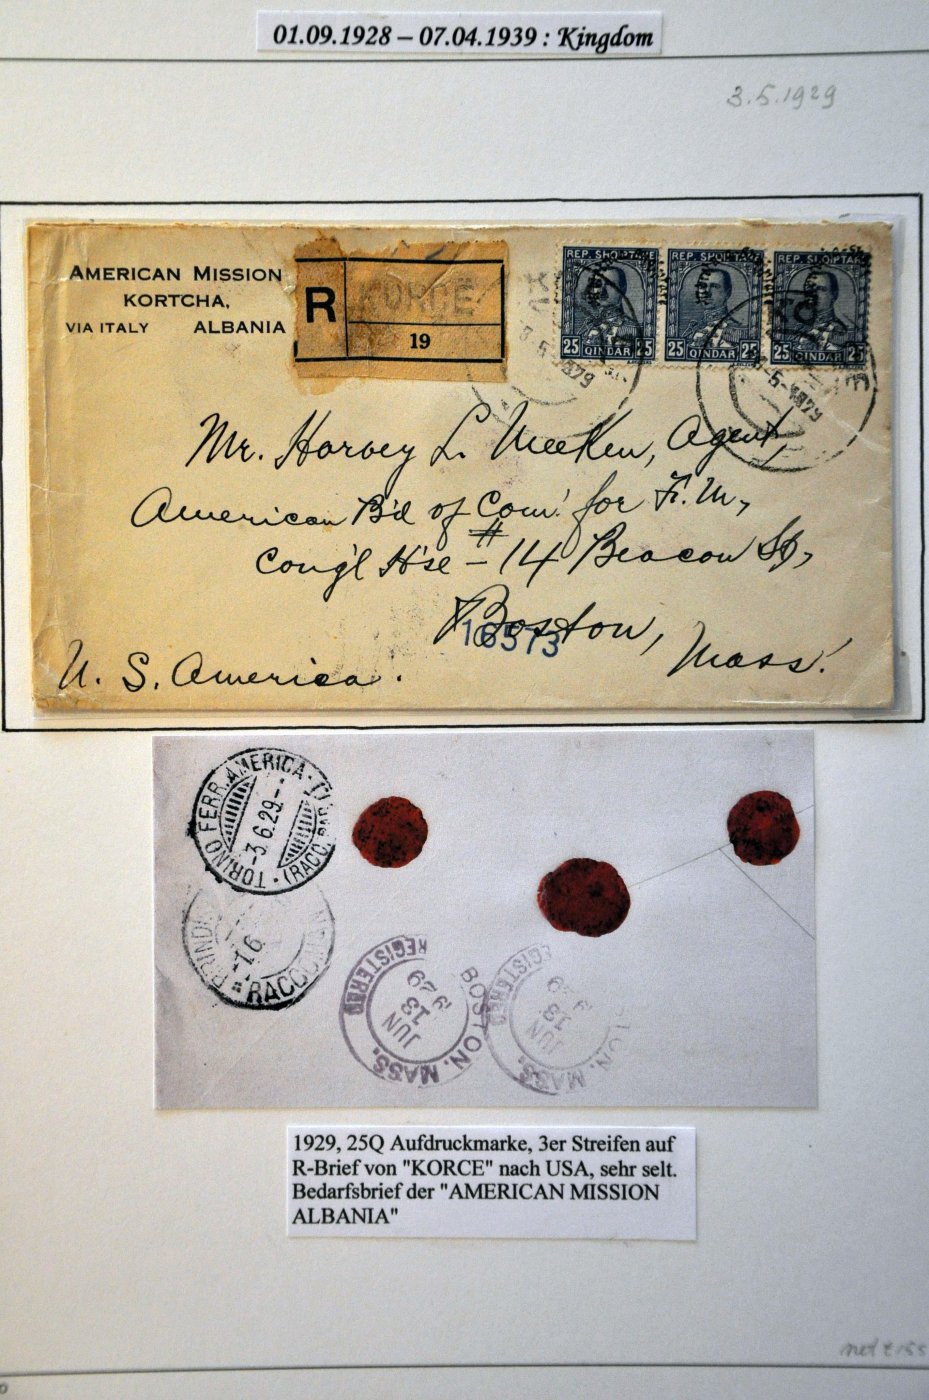 01.09.1928 – 07.04.1939 : Kingdom
3.5.1929
AMERICAN MISSION
KORTCHA,
VIA ITALY ALBANIA
R KORCE
19
REP. SHQIPTARE REP. SHQIPTARE REP. SHQIPTARE
25 QINDAR 25 25 QINDAR 25 25 QINDAR 25
Mr. Harvey L. Meeken, Agent,
American B'd of Com. for F. M,
Cong'l H'se - 14 Beacon St,
Boston,
16573
Mass.
U. S. America.
TORINO FERR. AMERICA
-3.6.29.-
(RACC.
BRINDI
-1.6
RACCOM
REGISTERED
BOSTON, MASS.
JUN
13
1929
REGISTERED
TON, MASS.
JUN
13
1929
1929, 25Q Aufdruckmarke, 3er Streifen auf
R-Brief von "KORCE" nach USA, sehr selt.
Bedarfsbrief der "AMERICAN MISSION
ALBANIA"